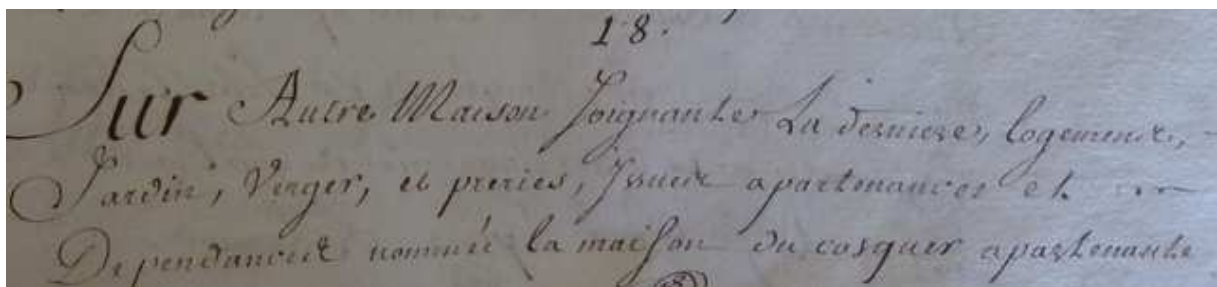 18.
Sur Autre Maison Joignante La derniere, logements,
Jardin, Verger, et preries, Issues apartenances et
Dependances nommée la maison du cosquer apartenante